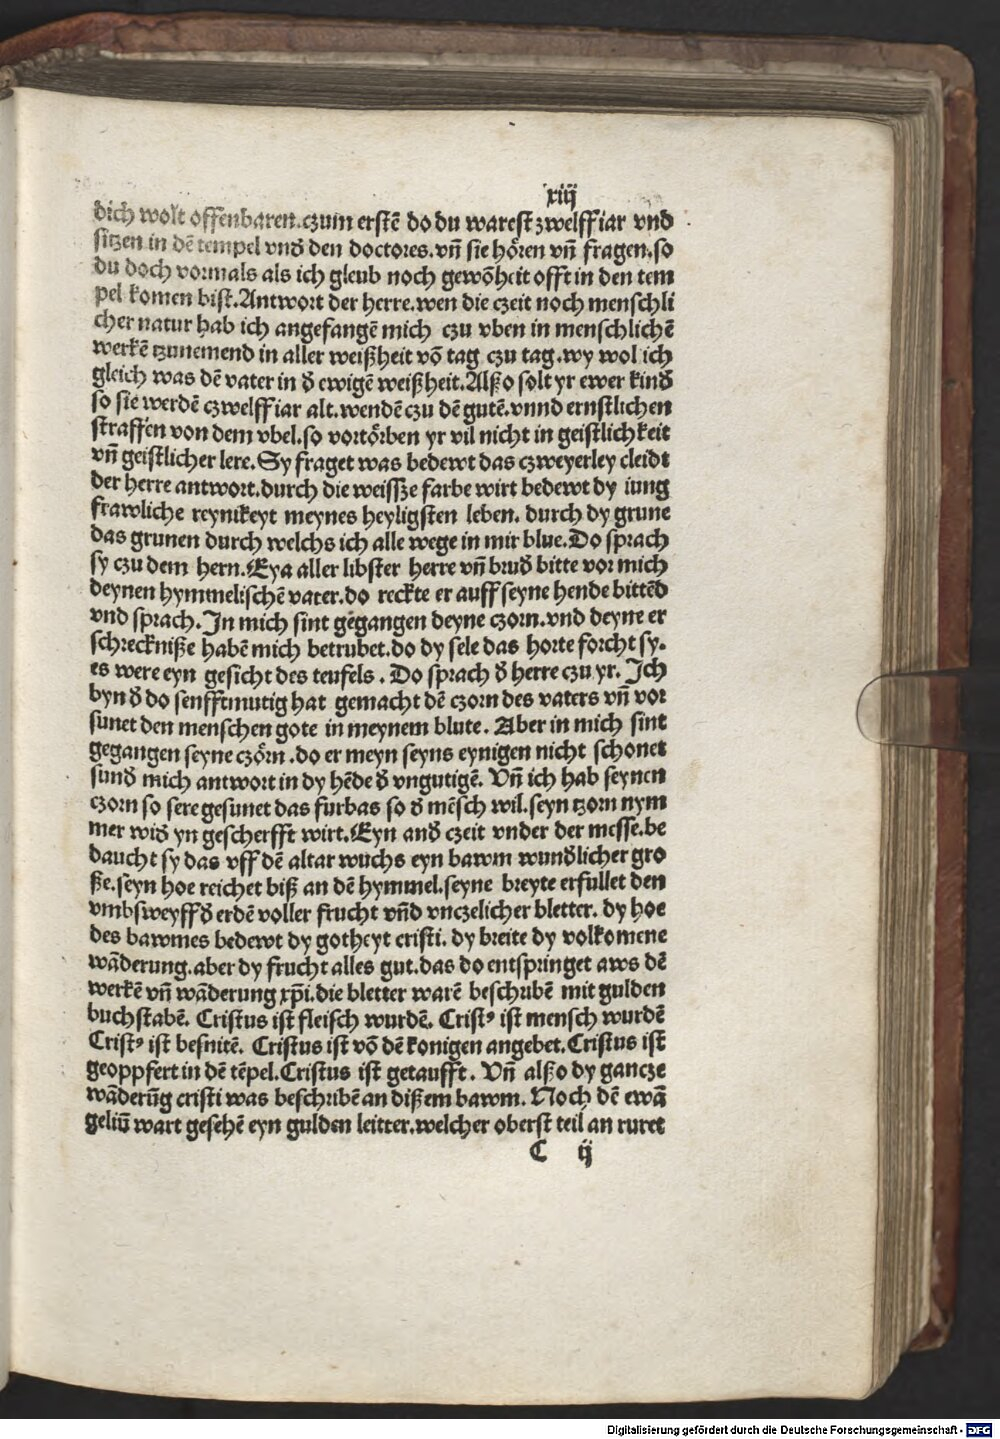 xiij
dich wolt offenbaren.czum erstē do du warest zwelff iar vnd
sitzen in dē tempel vnđ den doctores.vñ sie hören vñ fragen.so
du doch vormals als ich gleub noch gewōheit offt in den tem
pel komen bist.Antwort der herre.wen die czeit noch menschli
cher natur hab ich angefangē mich czu vben in menschlichē
werkē tzunemend in aller weißheit vō tag czu tag.wy wol ich
gleich was dē vater in đ ewigē weißheit.Alßo solt yr ewer kinđ
so sie werdē czwelff iar alt.wendē czu dē gutē.vnnd ernstlichen
straffen von dem vbel.so vortörben yr vil nicht in geistlichkeit
vñ geistlicher lere.Sy fraget was bedewt das czweyerley cleidt
der herre antwort.durch die weissze farbe wirt bedewt dy iung
frawliche reynikeyt meynes heyligsten leben. durch dy grune
das grunen durch welchs ich alle wege in mir blue.Do sprach
sy czu dem hern.Eya aller libster herre vñ bruđ bitte vor mich
deynen hymmelischē vater.do reckte er auff seyne hende bittēd
vnd sprach.In mich sint gegangen deyne czorn.vnd deyne er
schreckniße habē mich betrubet.do dy sele das horte forcht sy.
es were eyn gesicht des teufels. Do sprach đ herre czu yr. Ich
byn đ do senfftmutig hat gemacht dē czorn des vaters vñ vor
sunet den menschen gote in meynem blute. Aber in mich sint
gegangen seyne czörn.do er meyn seyns eynigen nicht schonet
sunđ mich antwort in dy hēde đ vngutigē. Vñ ich hab seynen
czorn so sere gesunet das furbas so đ mēsch wil.seyn tzorn nym
mer wiđ yn gescherfft wirt.Eyn anđ czeit vnder der messe.be
daucht sy das vff dē altar wuchs eyn bawm wunđlicher gro
ße.seyn hoe reichet biß an dē hymmel.seyne breyte erfullet den
vmbsweyff đ erdē voller frucht vñd vnczelicher bletter. dy hoe
des bawmes bedewt dy gotheyt cristi. dy breite dy volkomene
wāderung.aber dy frucht alles gut.das do entspringet aws dē
werkē vñ wāderung xp̄i.die bletter warē beschribē mit gulden
buchstabē. Cristus ist fleisch wurdē. Crist⁹ ist mensch wurdē
Crist⁹ ist besnitē. Cristus ist vō dē konigen angebet.Cristus ist
geoppfert in dē tēpel.Cristus ist getaufft. Vñ alßo dy gancze
wāderūg cristi was beschribē an dißem bawm. Noch dē ewā
geliū wart gesehē eyn gulden leitter.welcher oberst teil an ruret
C ij
Digitalisierung gefördert durch die Deutsche Forschungsgemeinschaft - DFG